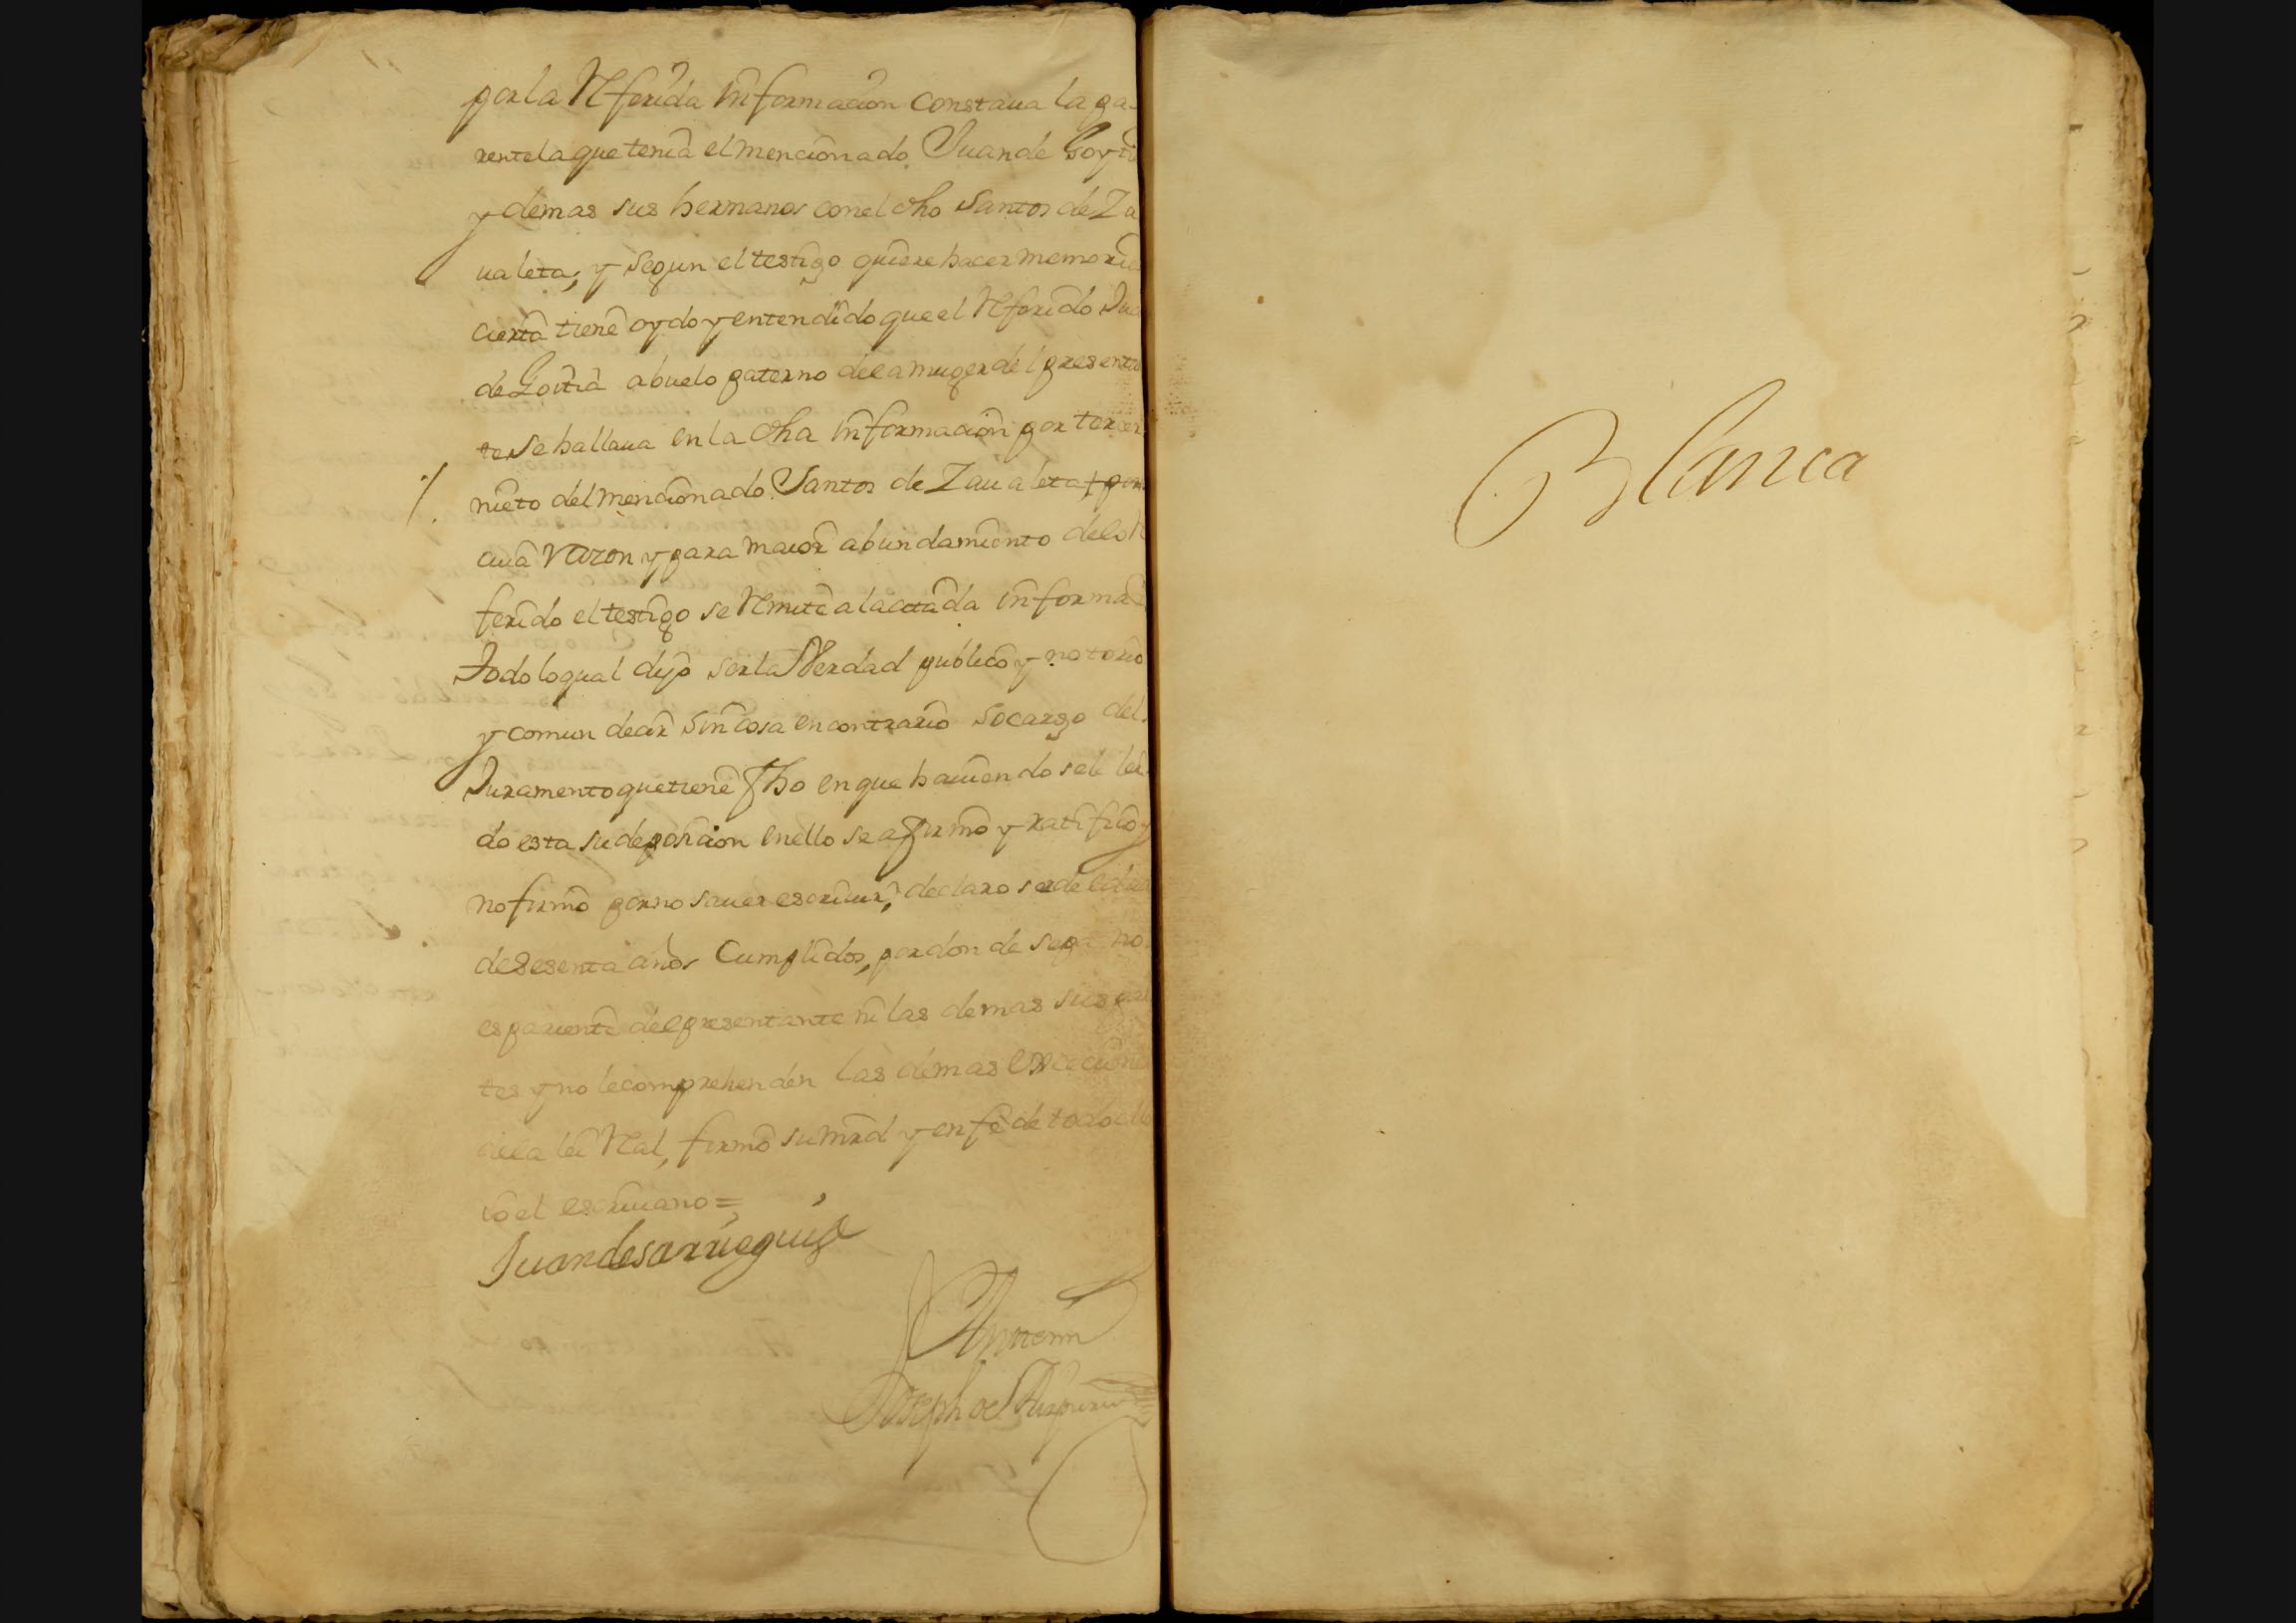 por la Referida informacion constaua la pa-
rentela que tenia el mencionado Juan de Goyti
y demas sus hermanos con el dho Santos de Za
ualeta, y segun el testigo quiere hacer memoria
cierta tiene oydo y entendido que el Referido Jua
de Goitia abuelo paterno de la muger del presentan
te se hallaua en la dha informacion por tercer
nieto del mencionado Santos de Zaualeta + por
cuia razon y para maior abundamiento de lo R
ferido el testigo se Remite a la citada informa
Todo lo qual dijo ser la Verdad publico y notorio
y comun decir sin cosa en contrario so cargo del
Juramento que tiene fho en que hauiendo sele lei
do esta su deposicion en ello se afirmo y ratifico y
no firmo por no sauer escriuir, declaro ser de edad
de sesenta años Cumplidos, por donde sepa no
es pariente del presentante ni las demas sus par
tes y no le comprehenden las demas excecione
de la lei Real, firmo su mrd y en fe de todo ello
io el escriuano =
Juan de sarriegui
Ante mi
Joseph de Aizpuru
Blanca